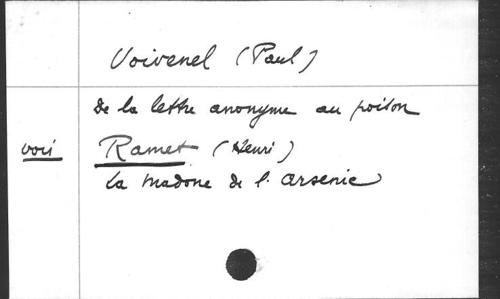 Voivenel (Paul)
de la lettre anonyme au poison
voir Ramet (Henri)
la madone de l'arsenic